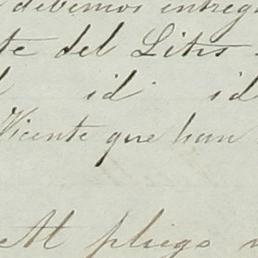 debemos entreg
te del Litis
id id
Vicente que han
Al pliego